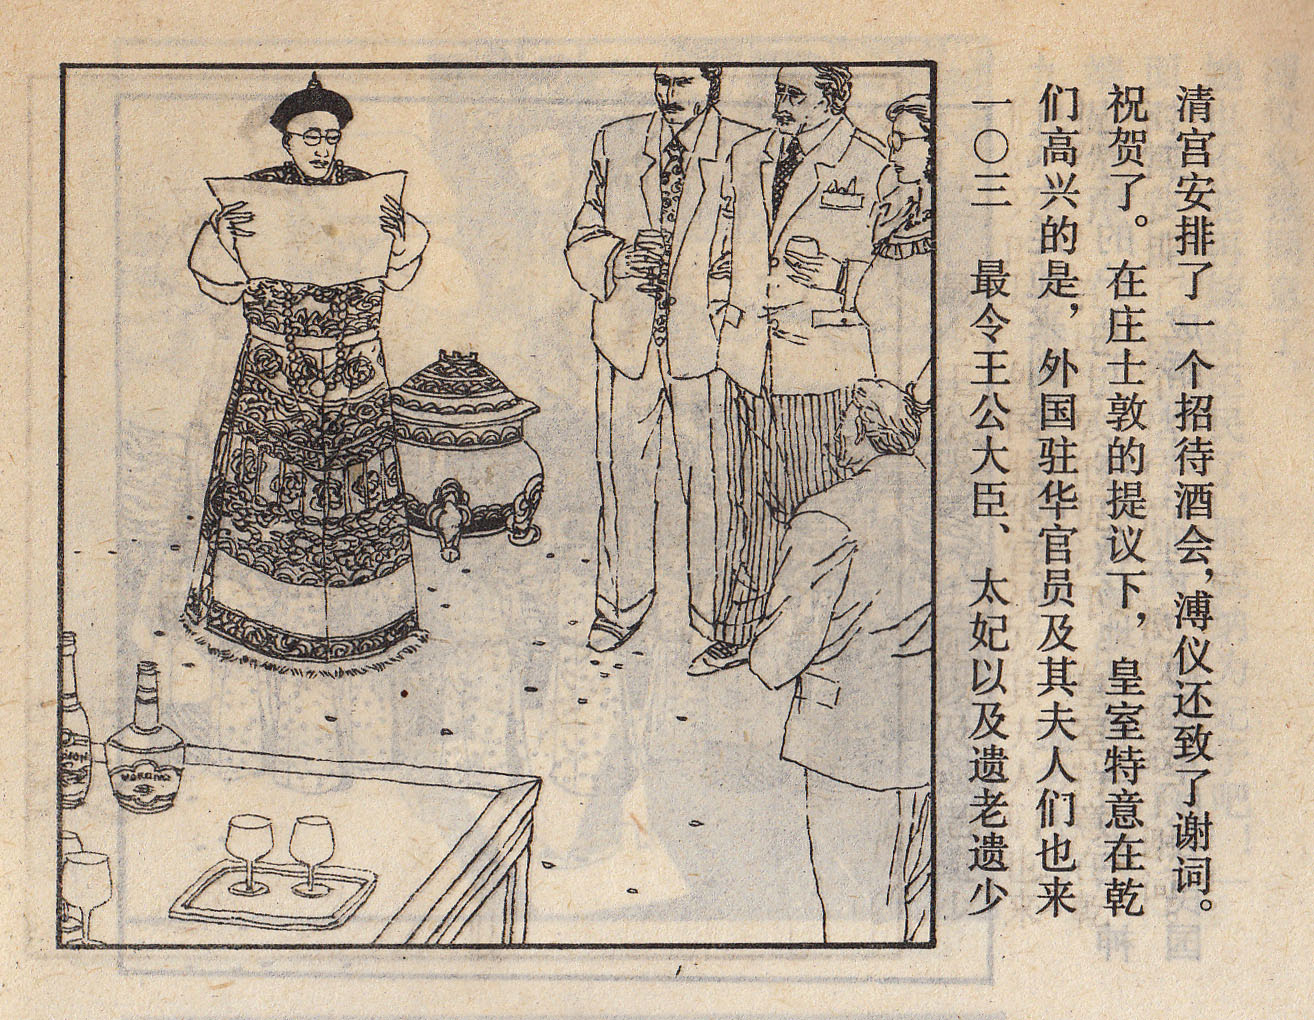 一〇三 最令王公大臣、太妃以及遗老遗少
们高兴的是，外国驻华官员及其夫人们也来
祝贺了。在庄士敦的提议下，皇室特意在乾
清宫安排了一个招待酒会，溥仪还致了谢词。